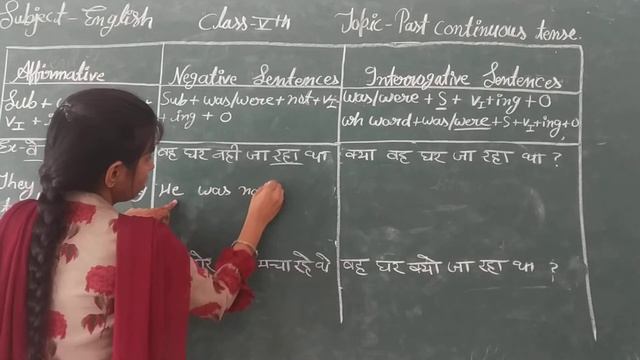 Subject - English Class - Vth Topic - Past Continuous tense.
Affirmative Negative Sentences Interrogative Sentences
Sub + Sub + was/were + not + VI was/were + S + VI + ing + O
VI + + ing + O wh word + was/were + S + VI + ing + O
Ex - वह घर नही जा रहा था क्या वह घर जा रहा था ?
They He was no
मचा रहे थे वह घर क्यो जा रहा था ?